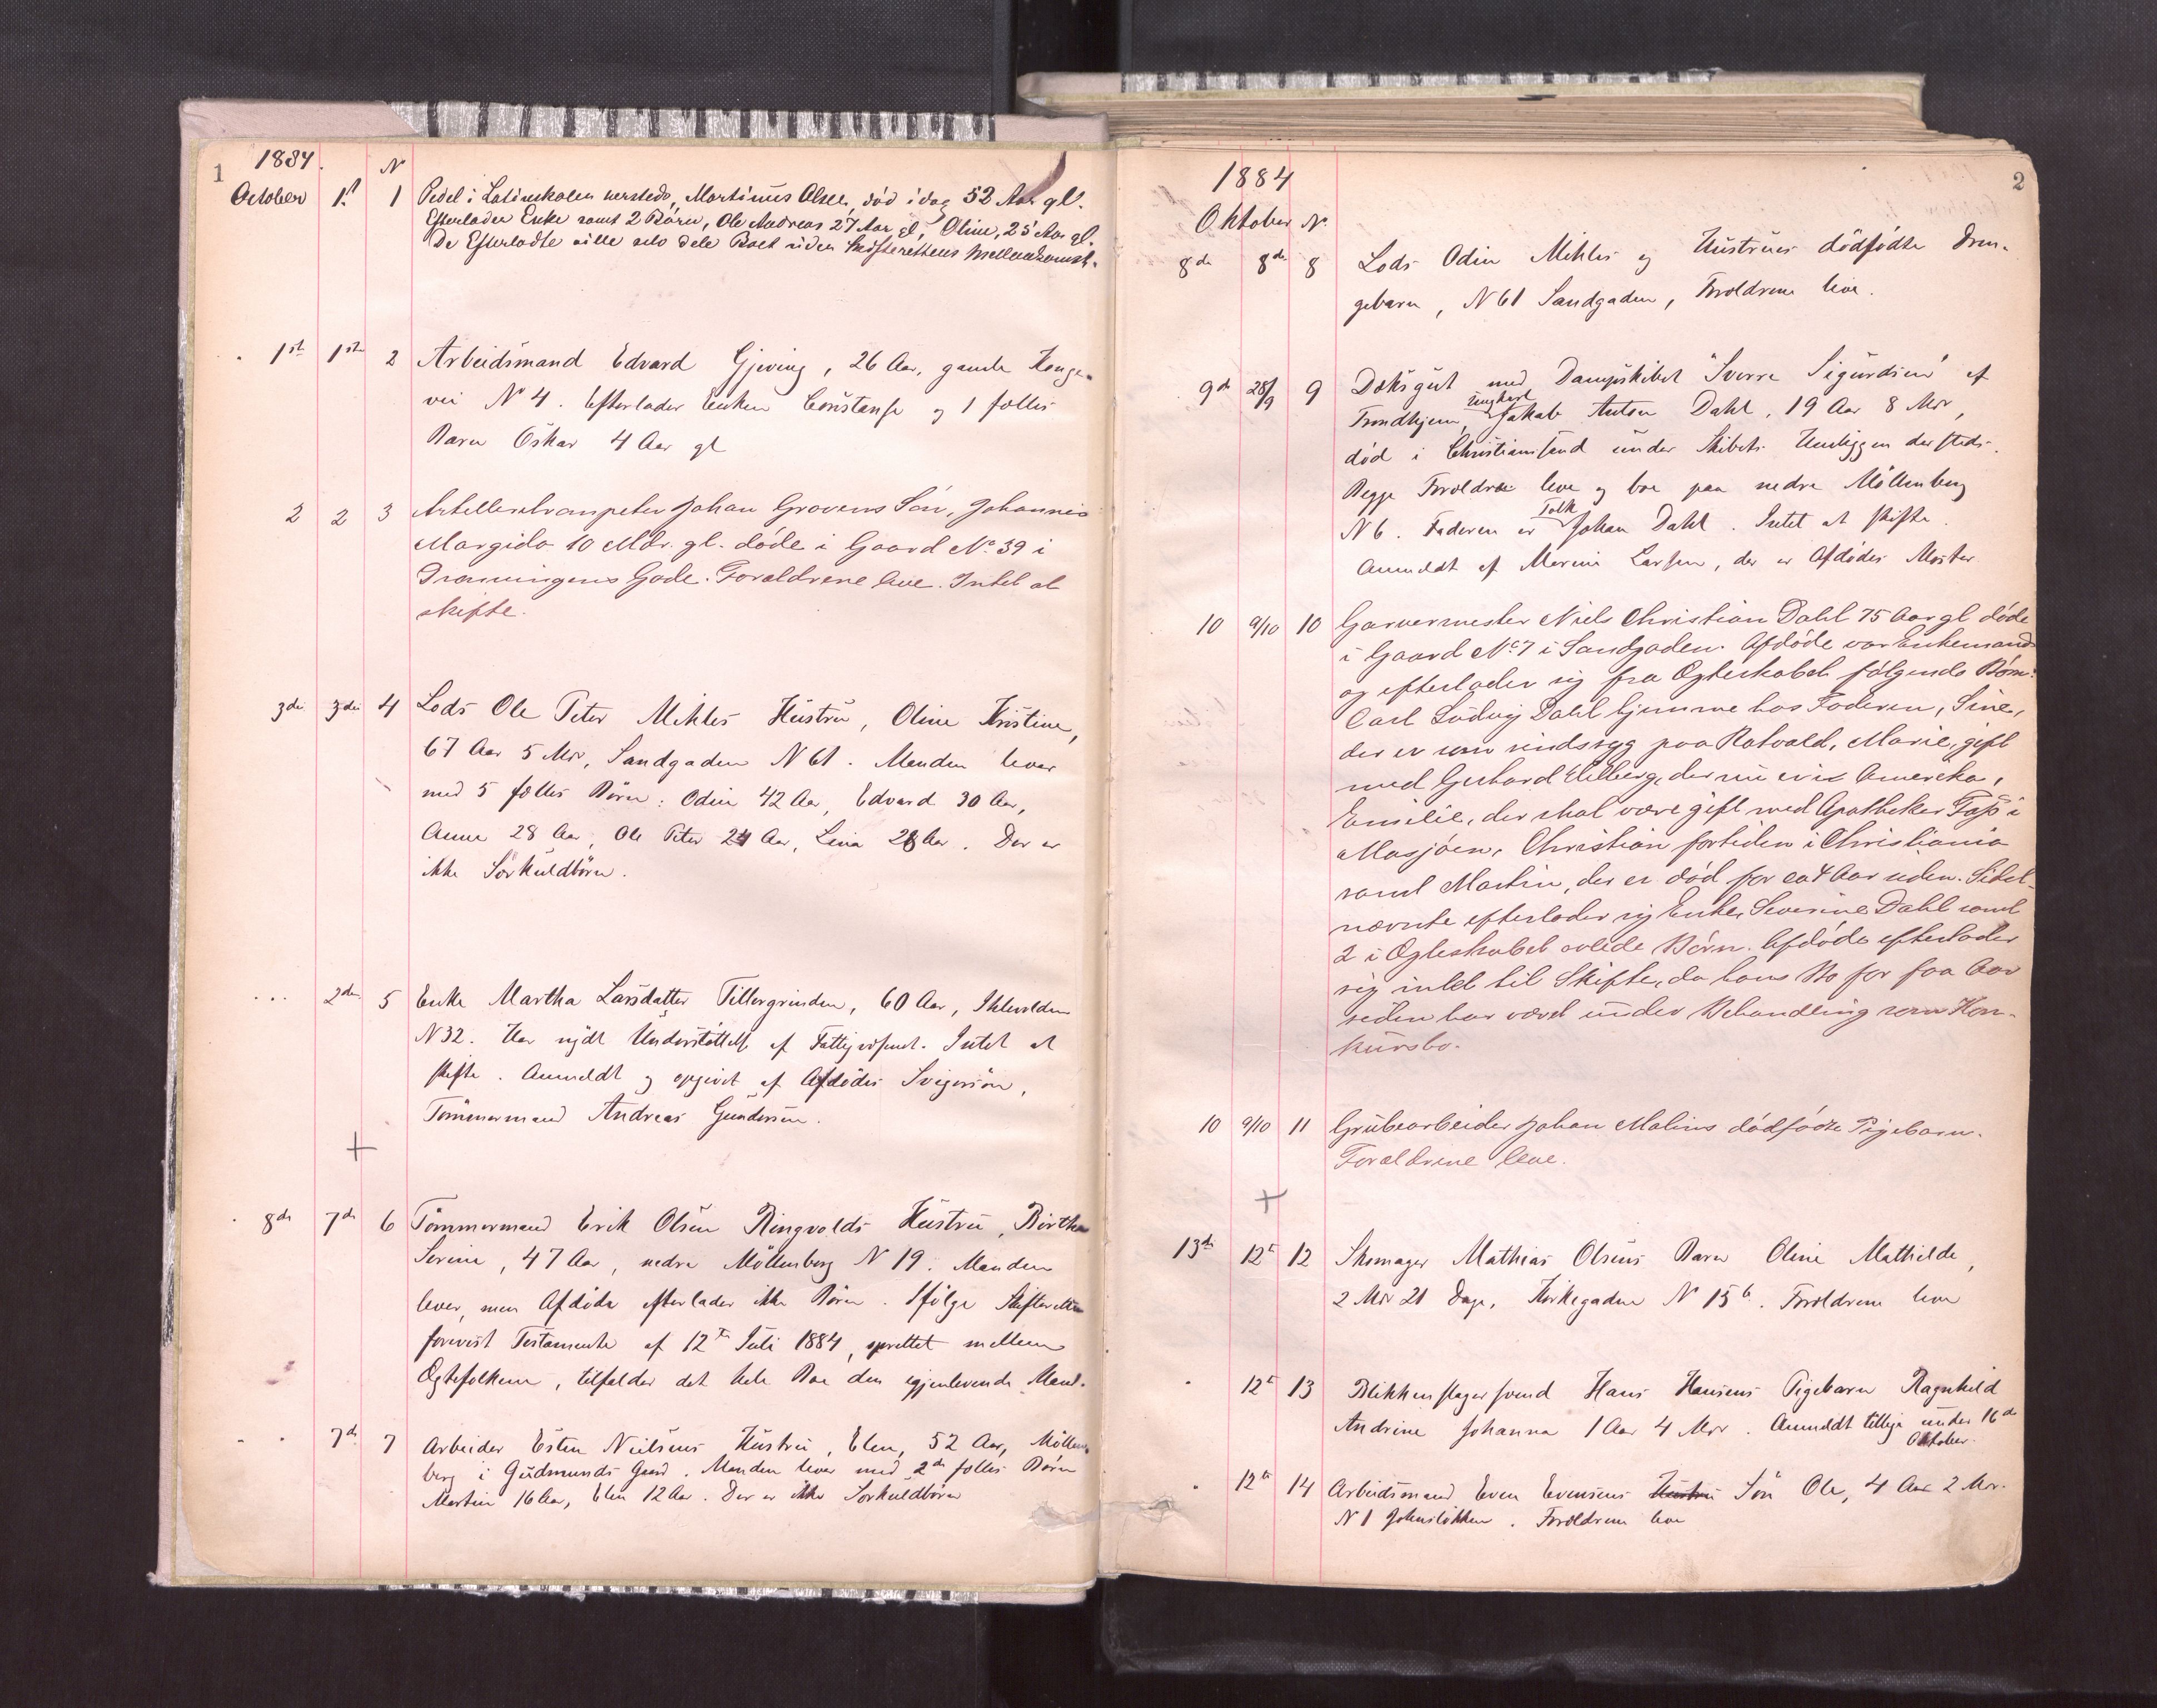 1
1884.
N
October 1st 1 Pedel i Latinskolen hersteds, Martinus Olsen, död idag 52 Aar gl.
Efterlader Enke samt 2 Börn, Ole Andreas 27 Aar gl, Oline, 25 Aar gl.
De Efterladte ville selv dele Boet uden Skifterettens Mellemkomst.
1ste 1ste 2 Arbeidsmand Edvard Gjeving, 26 Aar, gamle Konge-
vei N 4. Efterlader Enken Constanse og 1 fælles
Barn Oskar 4 Aar gl
2 2 3 Artilleritrompeter Johan Grovens Sön, Johannes
Margido 10 Mdr. gl. döde i Gaard No 39 i
Dronningens Gade. Forældrene leve. Intet at
skifte.
3die 3die 4 Lods Ole Peter Mehles Hustru, Oline Kristine,
67 Aar 5 Mdr, Sandgaden N 61. Manden lever
med 5 fælles Börn: Odin 42 Aar, Edvard 30 Aar,
Anne 28 Aar, Ole Peter 24 Aar, Lina 28 Aar. Der er
ikke Særkuldbörn.
2den 5 Enke Martha Larsdatter Tillergrinden, 60 Aar, Ihlevolden
N 32. Har nydt Understöttelse af Fattigvæsenet. Intet at
skifte. Anmeldt og opgivet af Afdödes Svigersön,
Tömmermand Andreas Gundersen.
8de 7de 6 Tömmermand Erik Olsen Ringvolds Hustru, Birthe
Serine, 47 Aar, nedre Möllenberg N 19. Manden
lever, men Afdöde efterlader ikke Börn. Ifölge Skifteretten
forevist Testamente af 12te Juli 1884, oprettet mellem
Ægtefolkene, tilfalder det hele Boe den igjenlevende Mand.
7de 7 Arbeider Esten Nielsens Hustru, Elen, 52 Aar, Möllen-
berg i Gudmunds Gaard. Manden lever med 2de fælles Börn
Martin 16 Aar, Elen 12 Aar. Der er ikke Særkuldbörn
2
1884
Oktober N.
8de 8de 8 Lods Odin Mehles og Hustrues dödfödte Dren-
gebarn, N 61 Sandgaden, Forældrene leve.
9de 28/9 9 Dæksgut med Dampskibet "Sverre Sigurdsen" af
Trondhjem, Ungkarl Jakob Anton Dahl, 19 Aar 8 Mdr,
död i Christiansand under Skibets Henliggen dersteds.
Begge Forældre leve og boe paa nedre Möllenberg
N 6. Faderen er Tolk Johan Dahl. Intet at skifte.
Anmeldt af Merine Larsen, der er Afdödes Moster
10 9/10 10 Garvermester Niels Christian Dahl 75 Aar gl döde
i Gaard No 7 i Sandgaden. Afdöde var Enkemand
og efterlader sig fra Ægteskabet fölgende Börn:
Carl Ludvig Dahl hjemme hos Faderen, Sine,
der er som sindssyg paa Rotvold, Marie, gift
med Gerhard Ellberg, der nu er i Amerika,
Emilie, der skal være gift med Apotheker Fass i
Mosjöen, Christian fortiden i Christiania
samt Martin, der er död for ca 4 Aar siden. Sidst-
nævnte efterlader sig Enke, Severine Dahl samt
2 i Ægteskabet avlede Börn. Afdöde efterlader
sig intet til Skifte, da hans Bo for faa Aar
siden har været under Behandling som Kon-
kursbo.
10 9/10 11 Grubearbeider Johan Malins dödfödte Pigebarn.
Forældrene leve.
13de 12te 12 Skomager Mathias Olsens Barn Oline Mathilde,
2 Mdr 21 Dage, Kirkegaden N 15b. Forældrene leve
12te 13 Blikkenslagersvend Hans Hansens Pigebarn Ragnhild
Andrine Johanna 1 Aar 4 Mdr. Anmeldt tillige under 16de
Oktober.
12te 14 Arbeidsmand Even Evensens Hustru Sön Ole, 4 Aar 2 Mdr.
N 1 Johnslökken. Forældrene leve